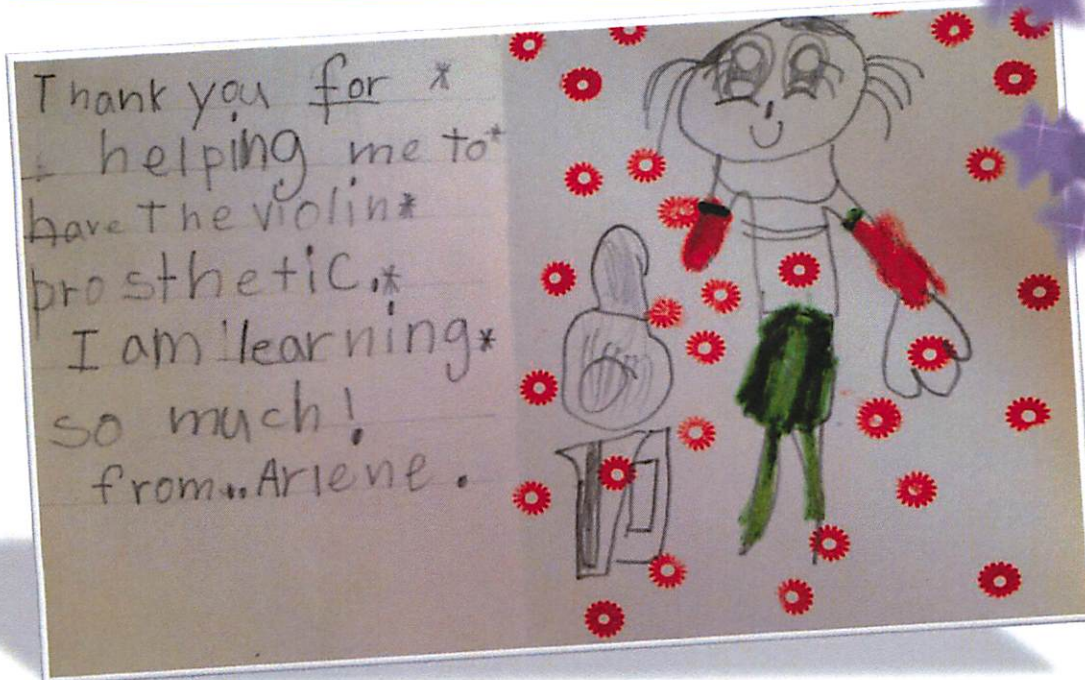 Thank you for *
helping me to*
have The violin*
prosthetic.*
I am learning*
so much!
from..Arlene.